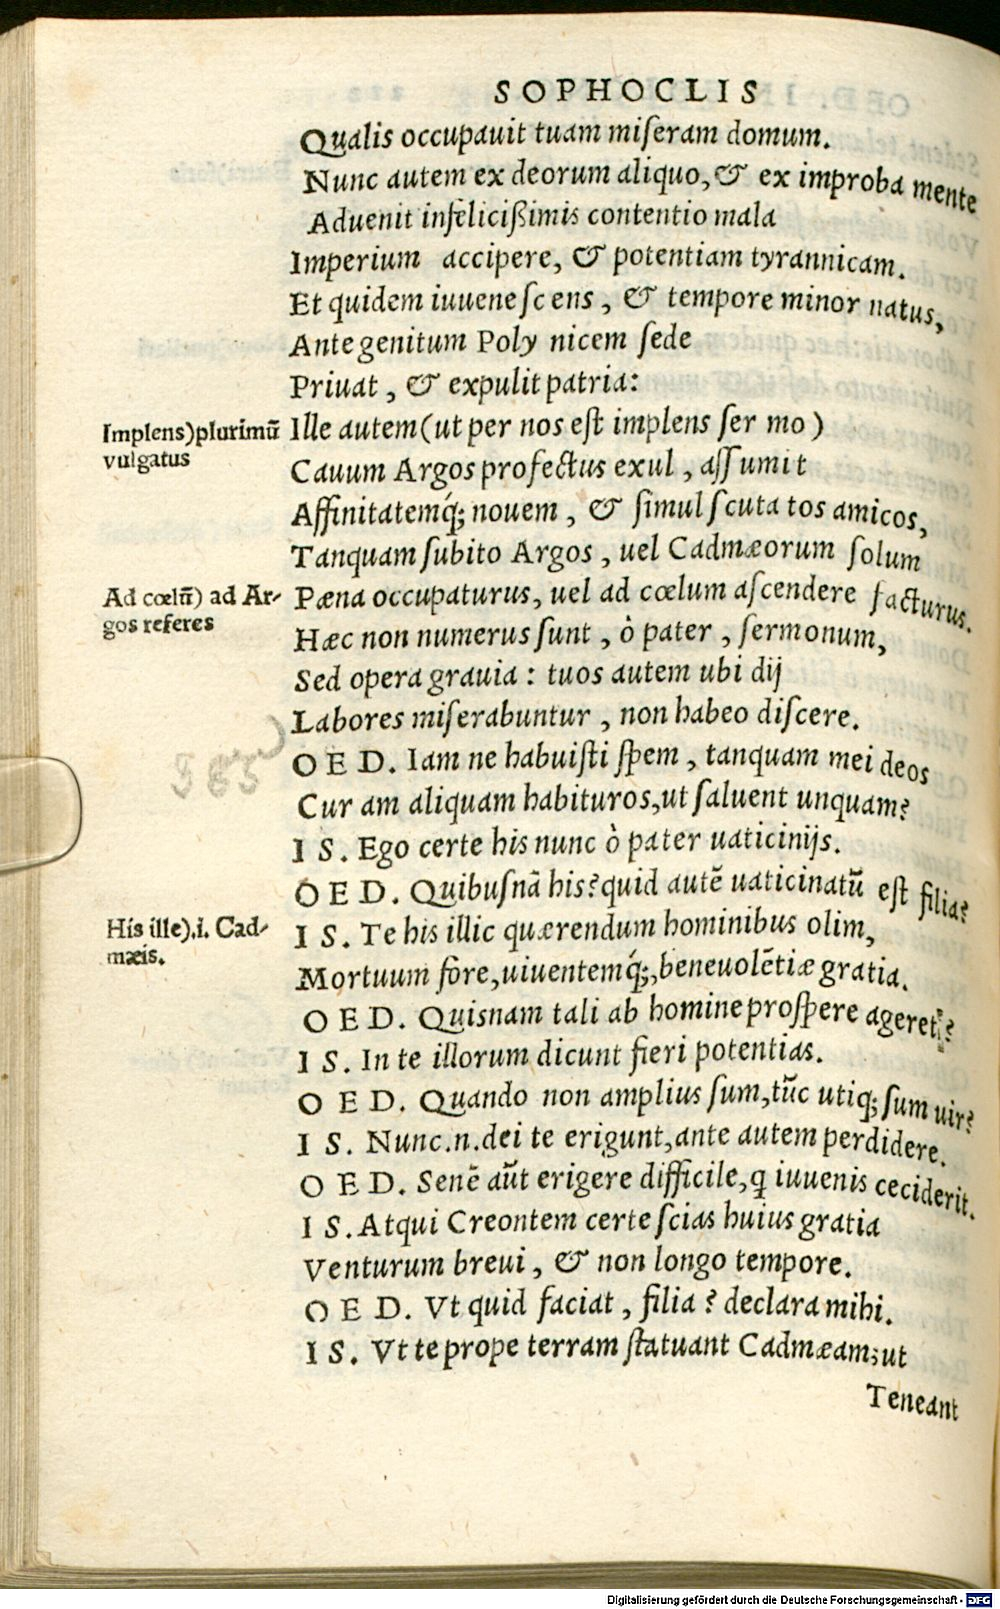 SOPHOCLIS
Qualis occupauit tuam miſeram domum.
Nunc autem ex deorum aliquo, & ex improba mente
Aduenit infeliciſſimis contentio mala
Imperium accipere, & potentiam tyrannicam.
Et quidem iuueneſcens, & tempore minor natus,
Ante genitum Polynicem ſede
Priuat, & expulit patria:
Implens) plurimū
vulgatus
Ille autem (ut per nos eſt implens ſermo)
Cauum Argos profectus exul, aſſumit
Affinitatemq́; nouem, & ſimul ſcutatos amicos,
Tanquam ſubito Argos, uel Cadmæorum ſolum
Ad cœlū) ad Ar-
gos referes
Pæna occupaturus, uel ad cœlum aſcendere facturus.
Hæc non numerus ſunt, ò pater, ſermonum,
Sed opera grauia: tuos autem ubi dij
Labores miſerabuntur, non habeo diſcere.
585
OED. Iam ne habuiſti ſpem, tanquam mei deos
Curam aliquam habituros, ut ſaluent unquam?
IS. Ego certe his nunc ò pater uaticinijs.
OED. Quibuſnā his? quid autē uaticinatū eſt filia?
His ille).i. Cad-
mæis.
IS. Te his illic quærendum hominibus olim,
Mortuum fore, uiuentemq́;, beneuolētiæ gratia.
OED. Quisnam tali ab homine proſpere ageret?
IS. In te illorum dicunt fieri potentias.
OED. Quando non amplius ſum, tūc utiq; ſum uir?
IS. Nunc.n.dei te erigunt, ante autem perdidere.
OED. Senē aūt erigere difficile, q iuuenis ceciderit.
IS. Atqui Creontem certe ſcias huius gratia
Venturum breui, & non longo tempore.
OED. Vt quid faciat, filia? declara mihi.
IS. Vt te prope terram ſtatuant Cadmæam; ut
Teneant
Digitalisierung gefördert durch die Deutsche Forschungsgemeinschaft - DFG